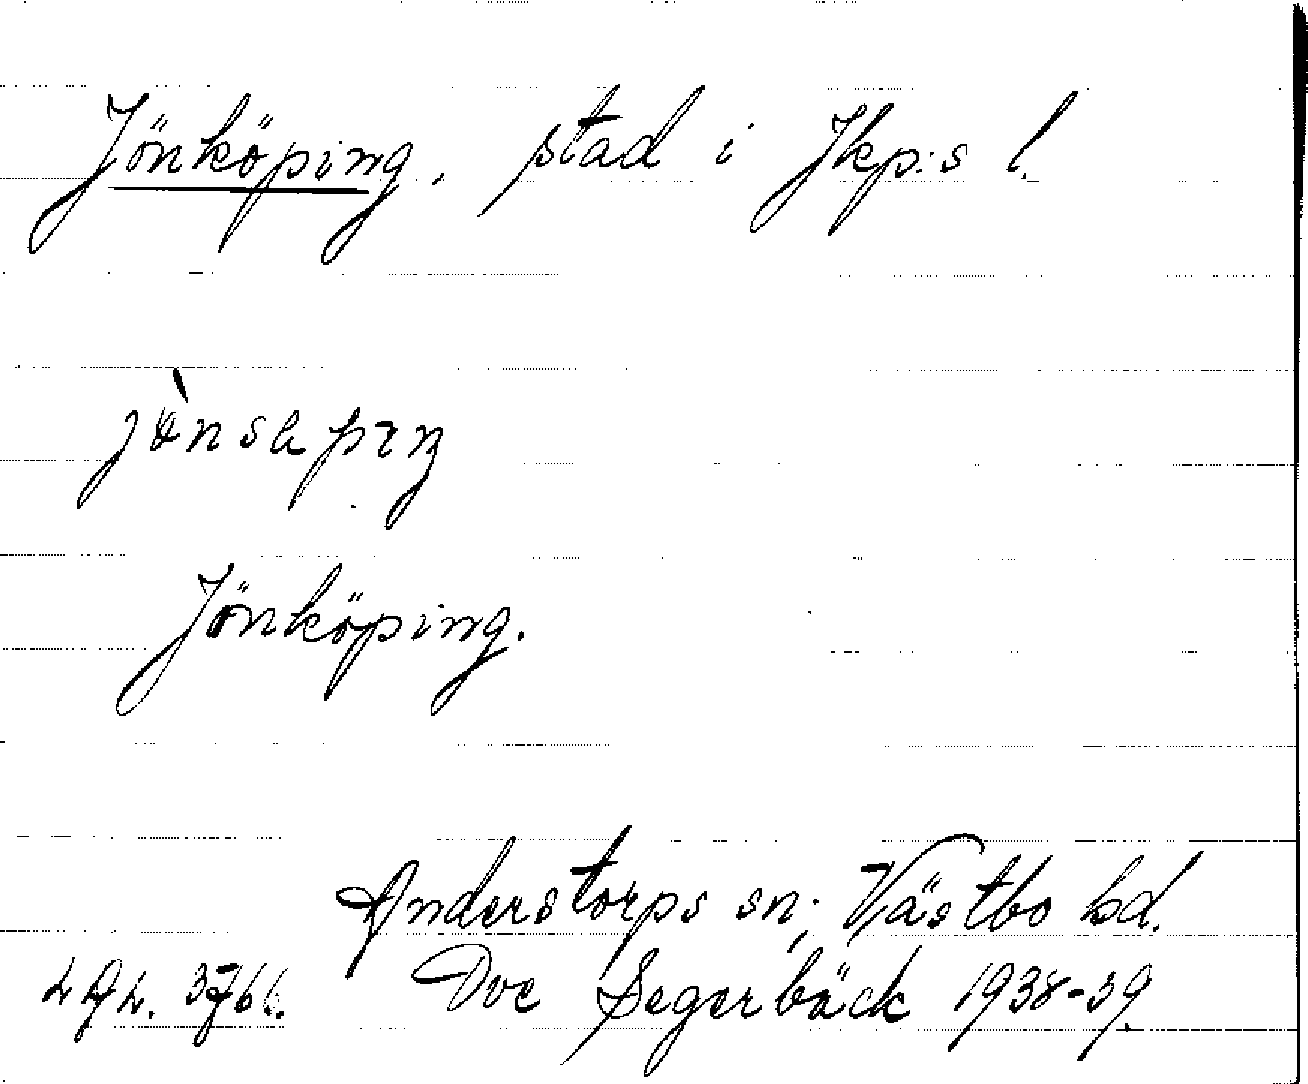 Jönköping, stad i Jkp:s l.
Jönköping.
Anderstorps sn; Västbo hd.
3766. Ove Segerbäck 1938-39.